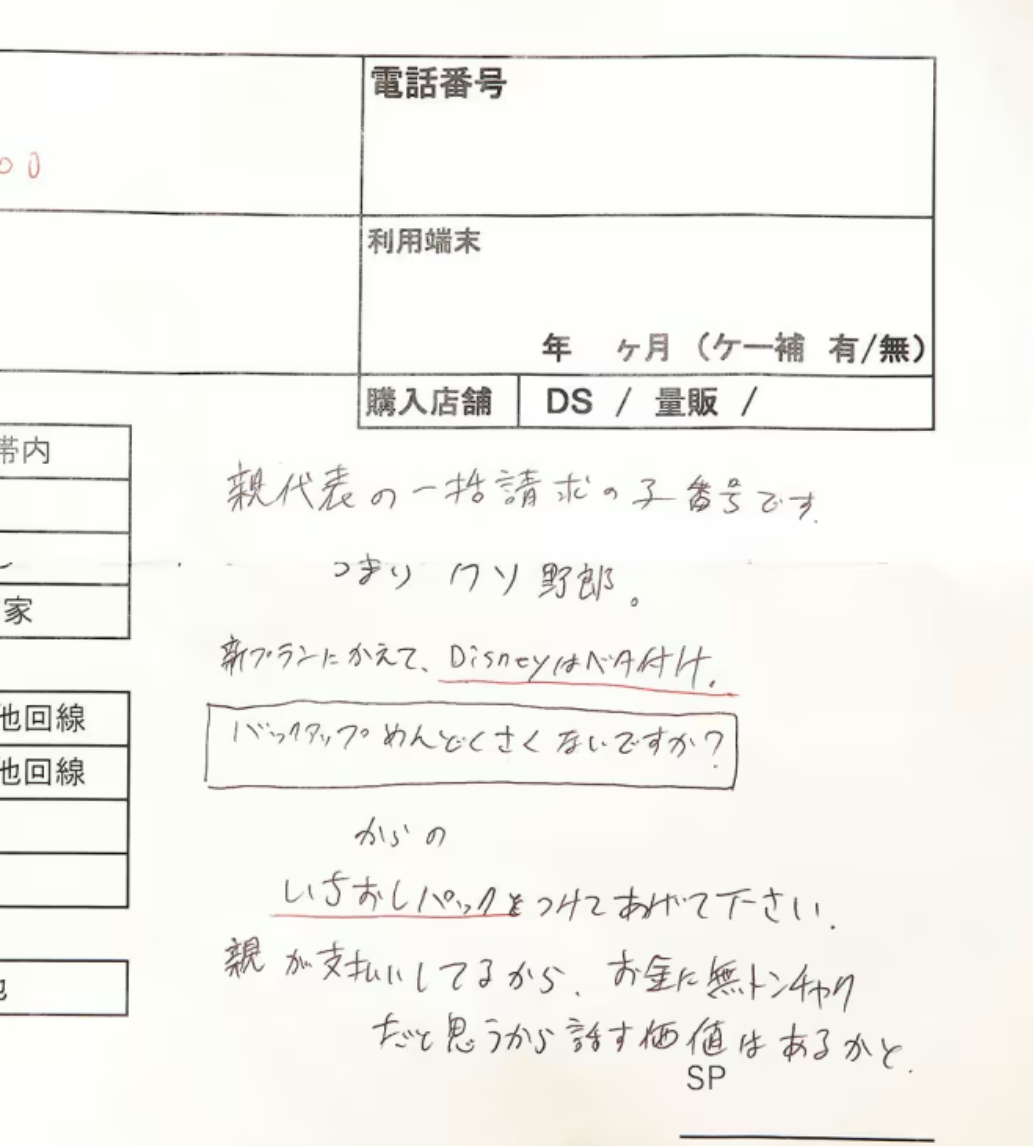 00
電話番号
利用端末
年 ヶ月 (ケー補 有/無)
購入店舗 DS / 量販 /
帯内
家
他回線
他回線
親代表の一括請求の子番号です.
つまり クソ野郎。
新プランにかえて、Disneyはベタ付け.
バックアップめんどくさくないですか?
からの
いちおしパックをつけてあげて下さい.
親が支払いしてるから、お金に無トンチャク
だと思うから話す価値はあるかと.
SP